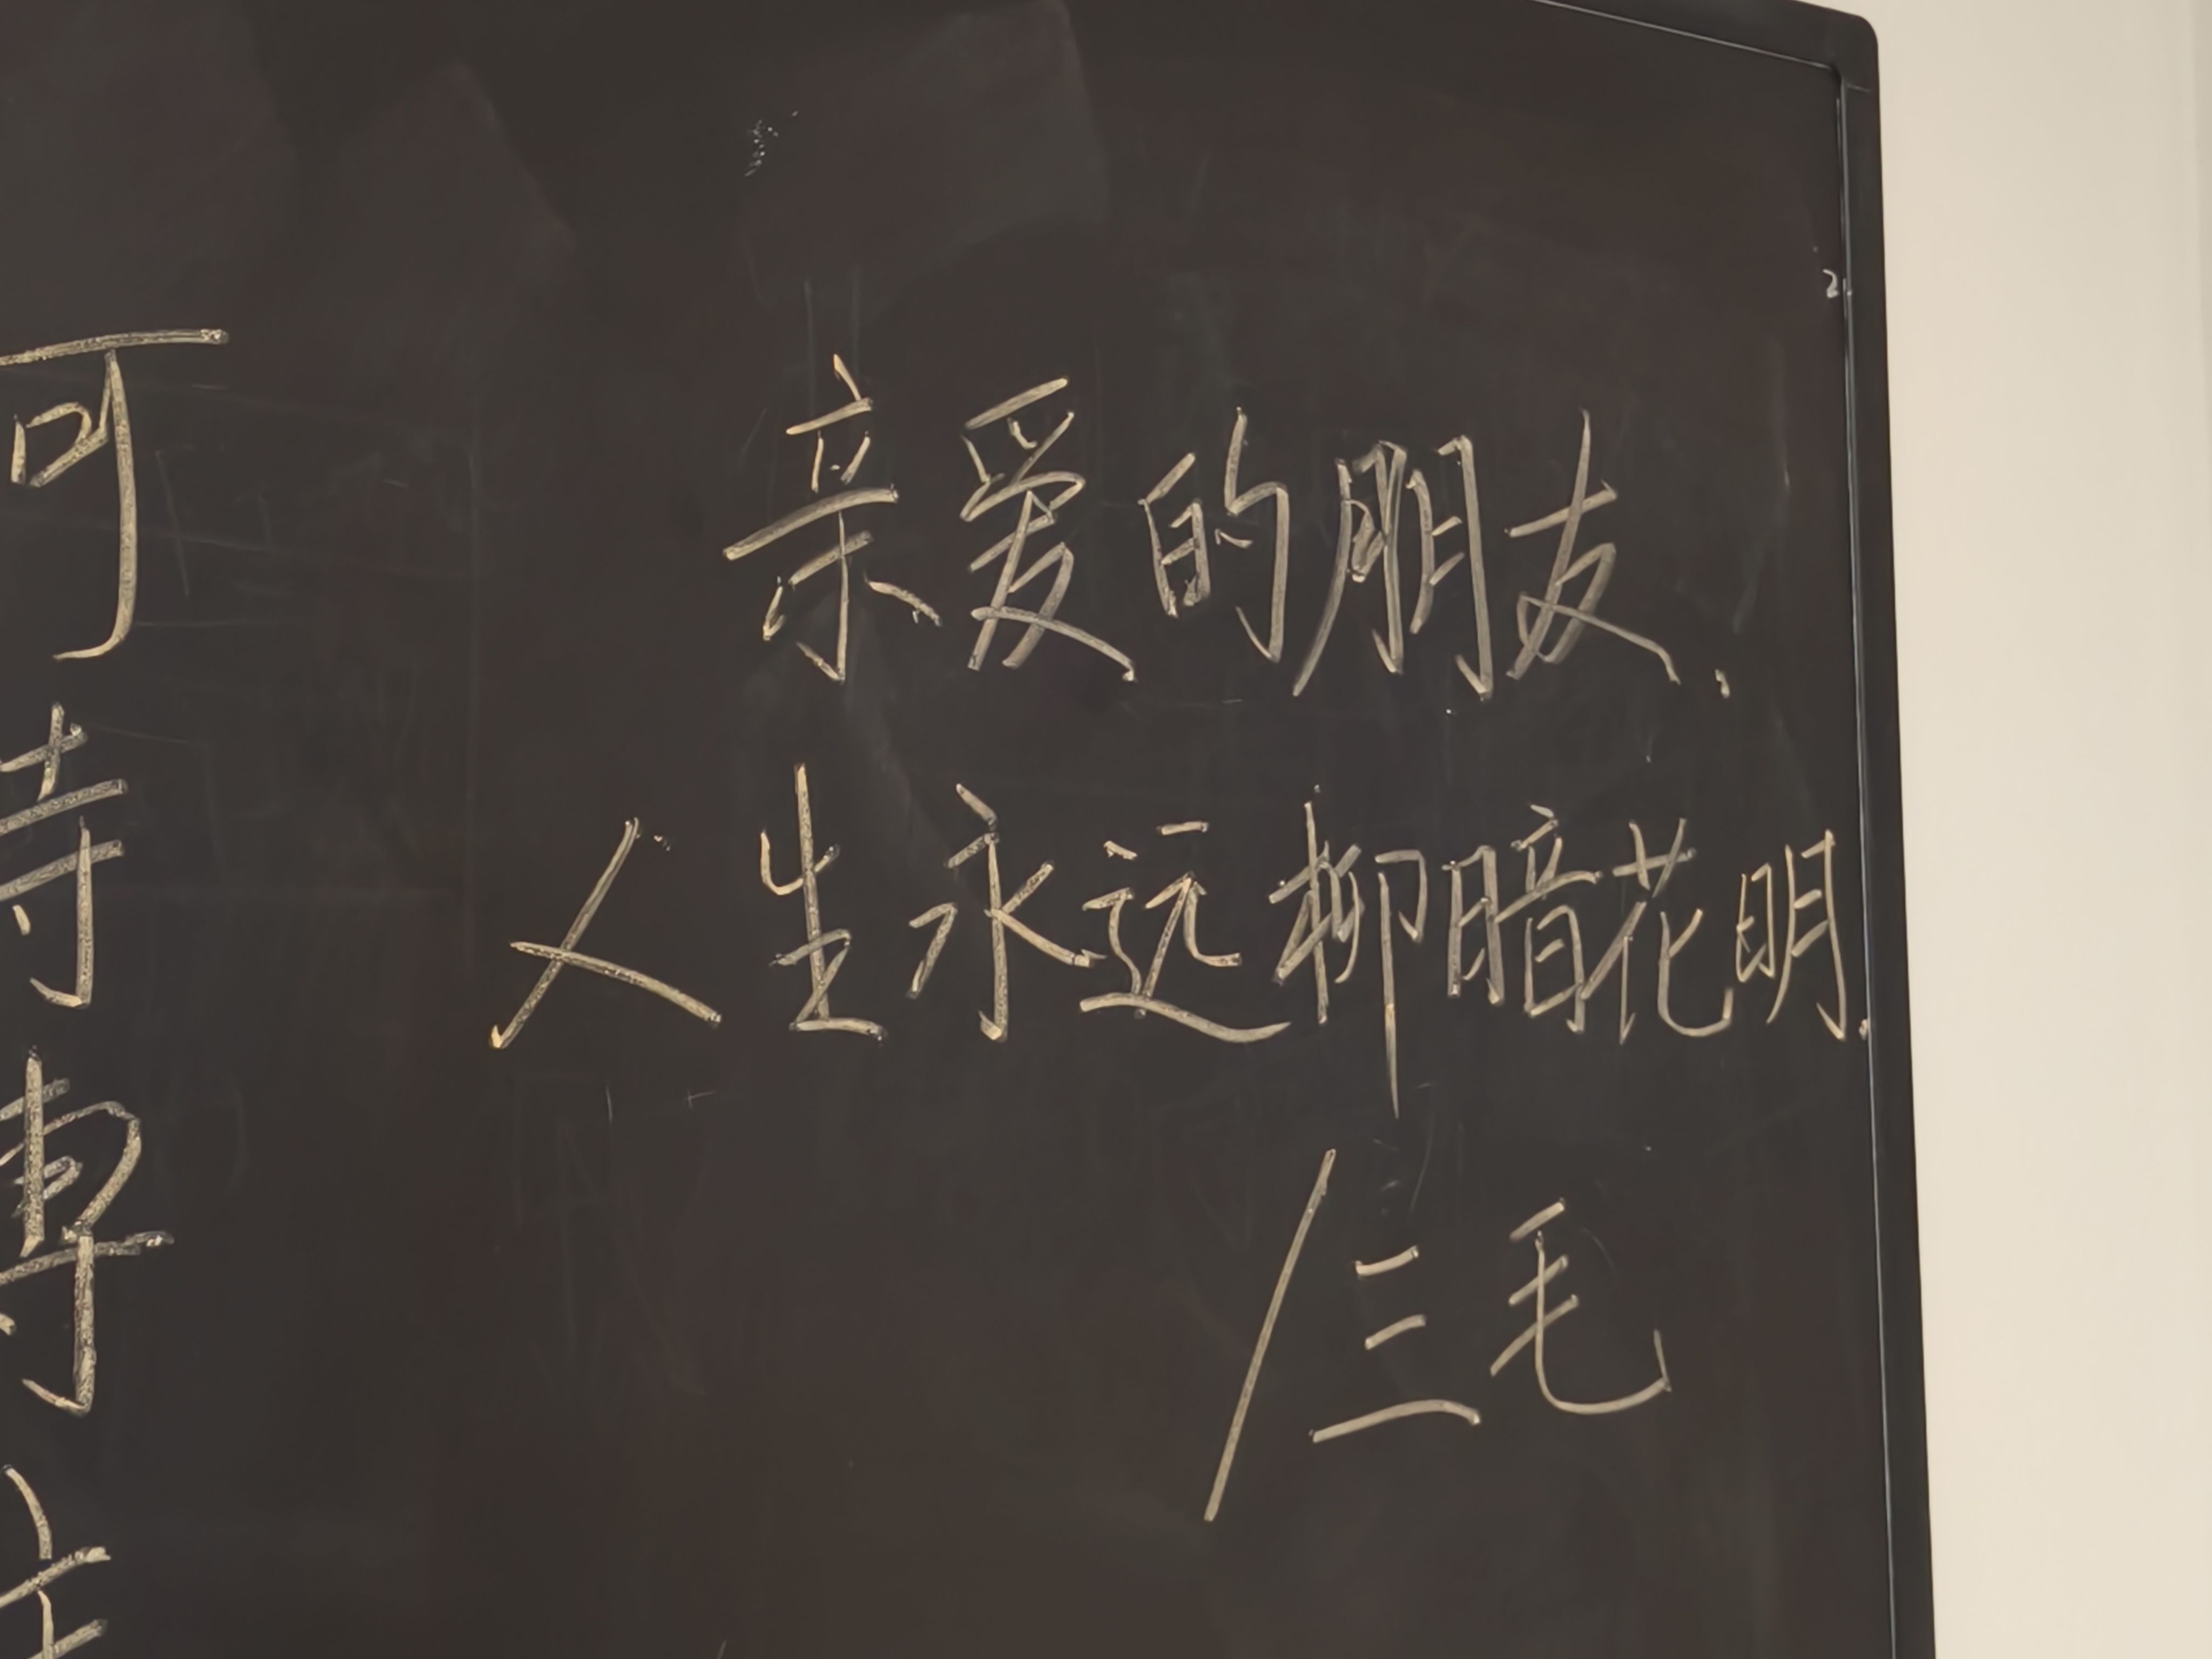 亲爱的朋友.
人生永远柳暗花明.
/三毛